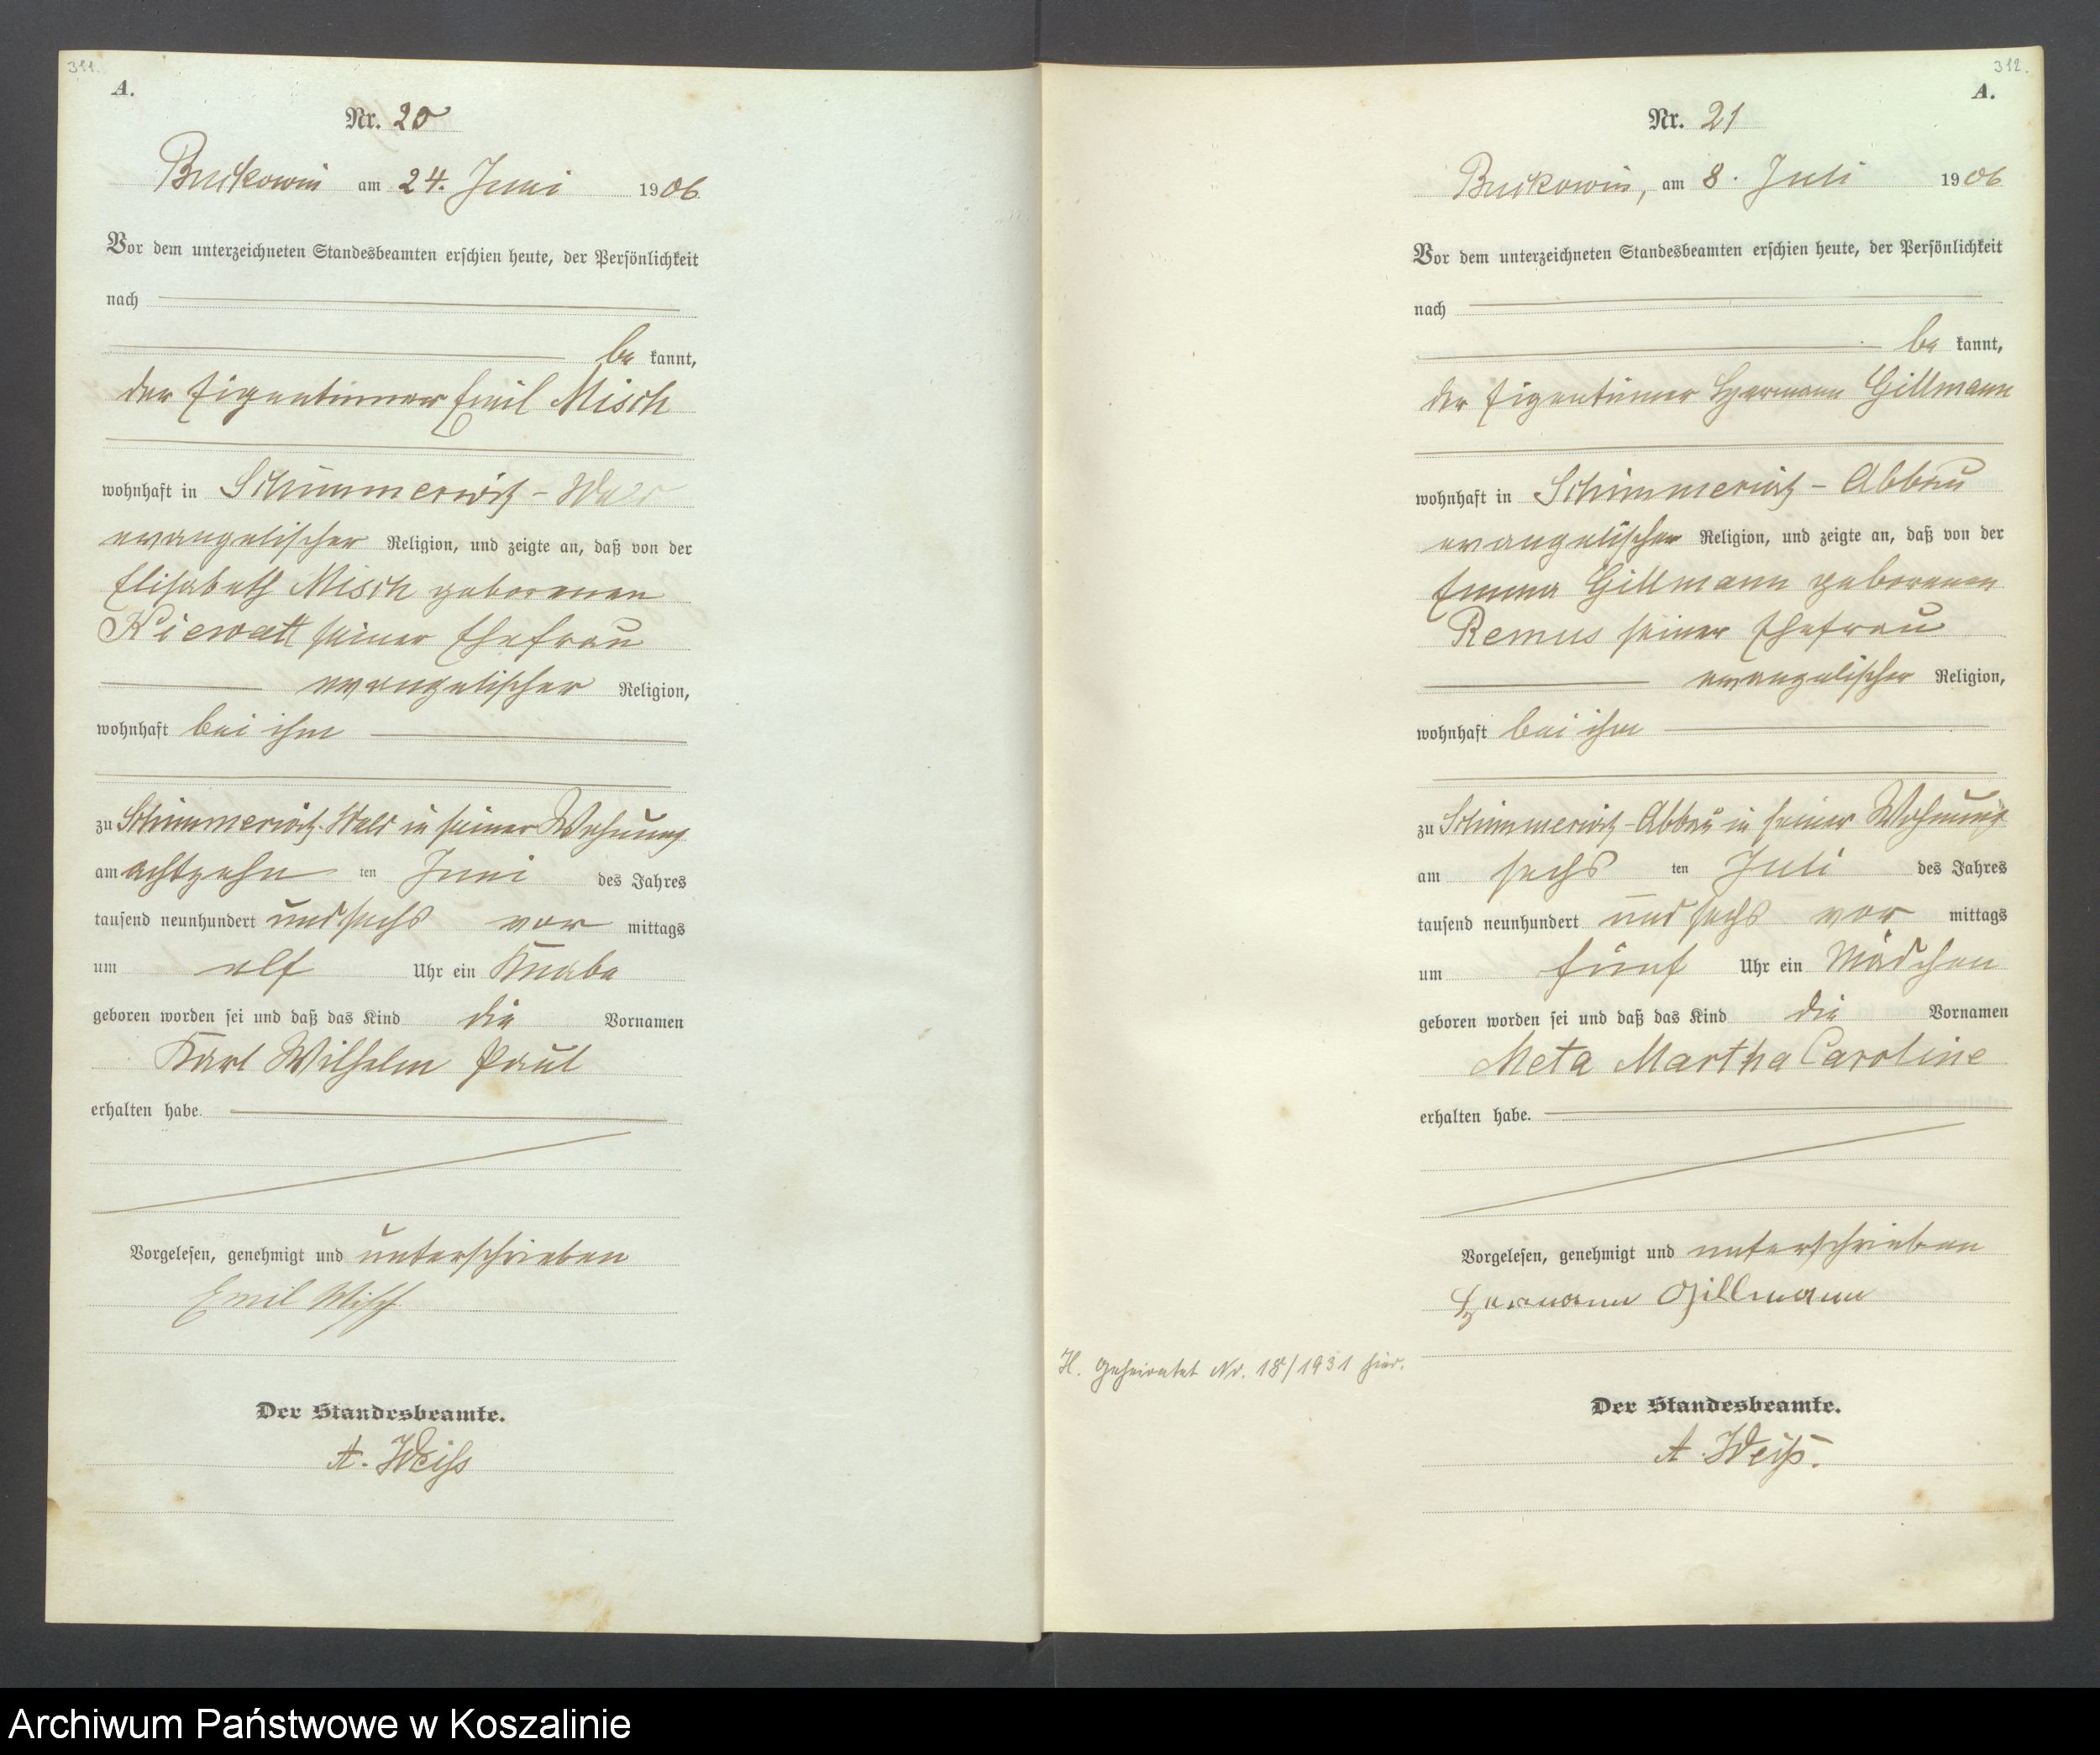 311.
A.
Nr. 20
Buckowin am 24. Juni 1906
Vor dem unterzeichneten Standesbeamten erschien heute, der Persönlichkeit
nach
be kannt,
der Eigentümer Emil Misch
wohnhaft in Schimmerwitz - Wald
evangelischer Religion, und zeigte an, daß von der
Elisabeth Misch geborenen
Kiewatt seiner Ehefrau
evangelischer Religion,
wohnhaft bei ihm
zu Schimmerwitz-Wald in seiner Wohnung
am achtzehn ten Juni des Jahres
tausend neunhundert und sechs vor mittags
um elf Uhr ein Knabe
geboren worden sei und daß das Kind die Vornamen
Karl Wilhelm Paul
erhalten habe.
Vorgelesen, genehmigt und unterschrieben
Emil Misch
Der Standesbeamte.
A. Weiss
312.
A.
Nr. 21
Buckowin, am 8. Juli 1906
Vor dem unterzeichneten Standesbeamten erschien heute, der Persönlichkeit
nach
be kannt,
der Eigentümer Hermann Gillmann
wohnhaft in Schimmerwitz - Abbau
evangelischer Religion, und zeigte an, daß von der
Emma Gillmann geborenen
Remus seiner Ehefrau
evangelischer Religion,
wohnhaft bei ihm
zu Schimmerwitz-Abbau in seiner Wohnung
am sechs ten Juli des Jahres
tausend neunhundert und sechs vor mittags
um fünf Uhr ein Mädchen
geboren worden sei und daß das Kind die Vornamen
Meta Martha Caroline
erhalten habe.
Vorgelesen, genehmigt und unterschrieben
Hermann Gillmann
H. Geheiratet Nr. 18/1931 hier.
Der Standesbeamte.
A. Weiß.
Archiwum Państwowe w Koszalinie